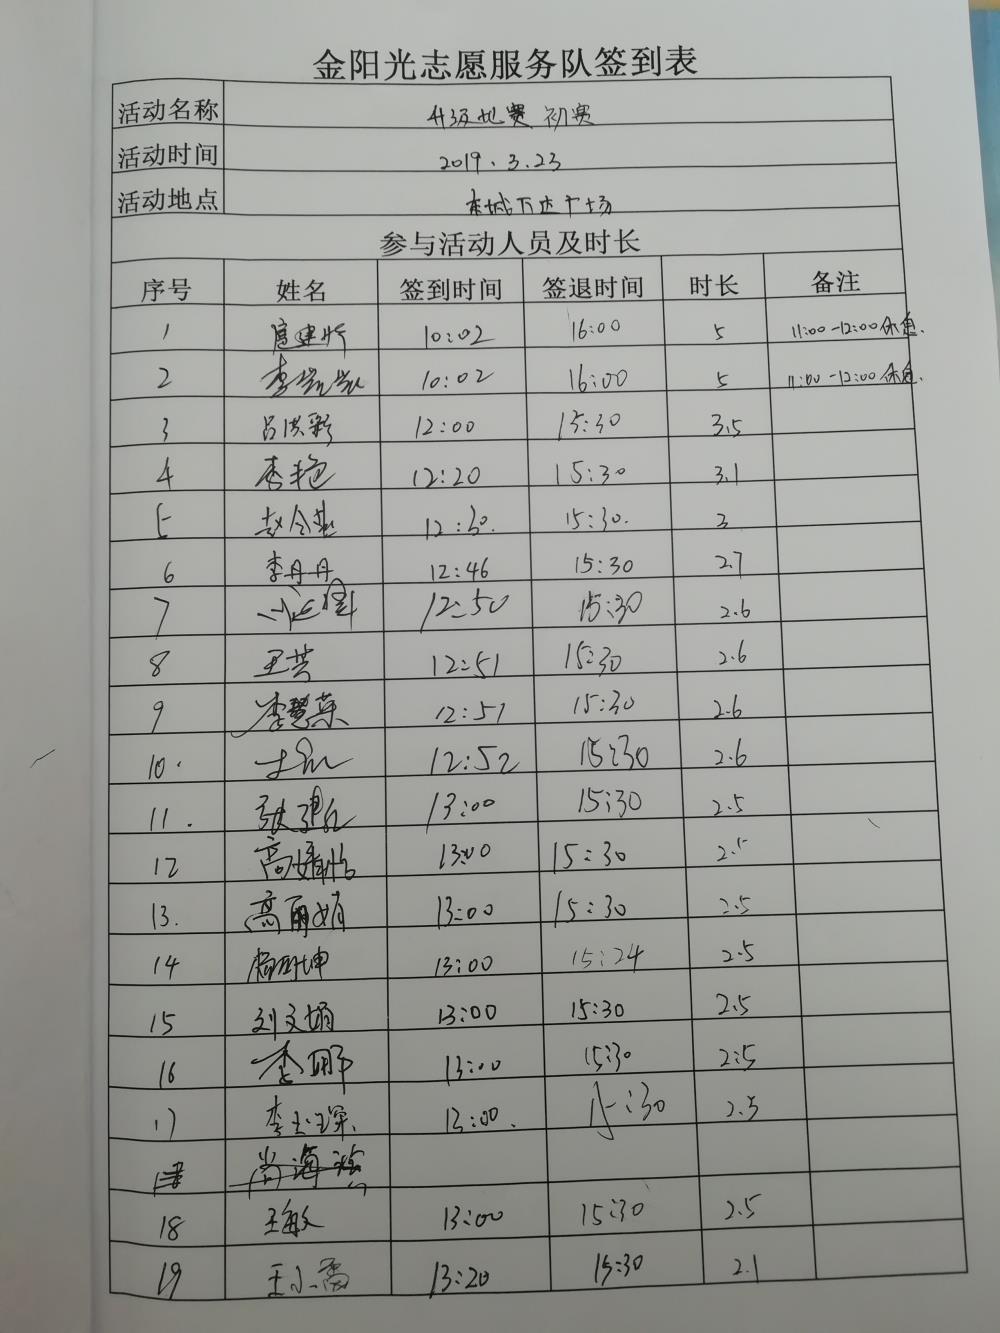 金阳光志愿服务队签到表
活动名称 升级比赛 初赛
活动时间 2019.3.23
活动地点 栾城万达广场
参与活动人员及时长
序号 姓名 签到时间 签退时间 时长 备注
1 10:02 16:00 5 11:00-12:00休息.
2 李凯凯 10:02 16:00 5 11:00-12:00休息.
3 吕洪彩 12:00 15:30 3.5
4 李艳 12:20 15:30 3.1
5 赵令 12:30. 15:30. 3
6 李丹丹 12:46 15:30 2.7
7 12:50 15:30 2.6
8 王芸 12:51 15:30 2.6
9 李慧荣 12:51 15:30 2.6
10. 12:52 15:30 2.6
11. 张建红 13:00 15:30 2.5
12 高婧怡 13:00 15:30 2.5
13. 高丽娟 13:00 15:30 2.5
14 杨 坤 13:00 15:24 2.5
15 刘文娟 13:00 15:30 2.5
16 李娜 13:00 15:30 2.5
17 李 13:00. 15:30 2.5
尚海
18 王敏 13:00 15:30 2.5
19 王小霞 13:20 15:30 2.1